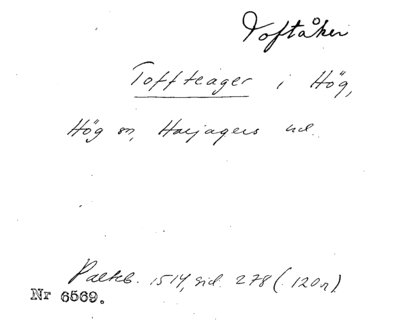 Toftåker
Toffteager i Hög,
Hög sn, Harjagers hd.
Palteb. 1514, sid. 278 (120r)
Nr 6569.